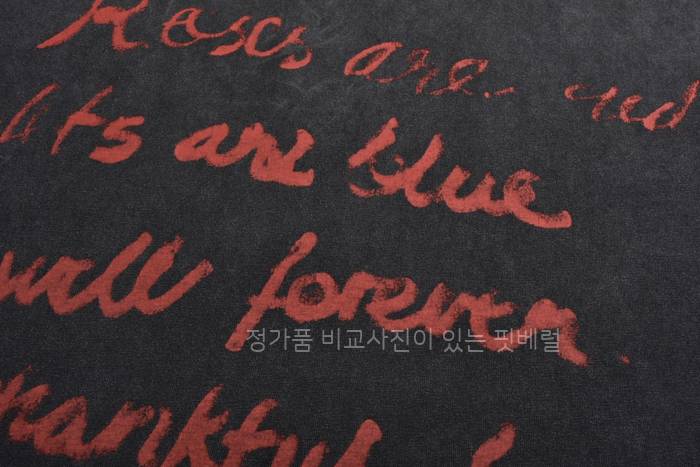 Roses are red
ts are blue
will forever
정가품 비교사진이 있는 핏베럴
hankful